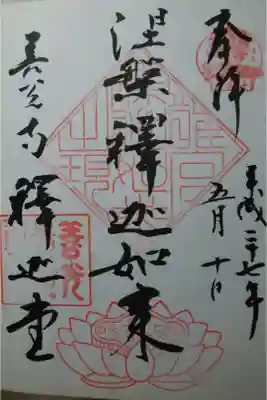 奉拝
平成二十七年
五月十日
涅槃釋迦如来
善光寺 釋迦堂
善光